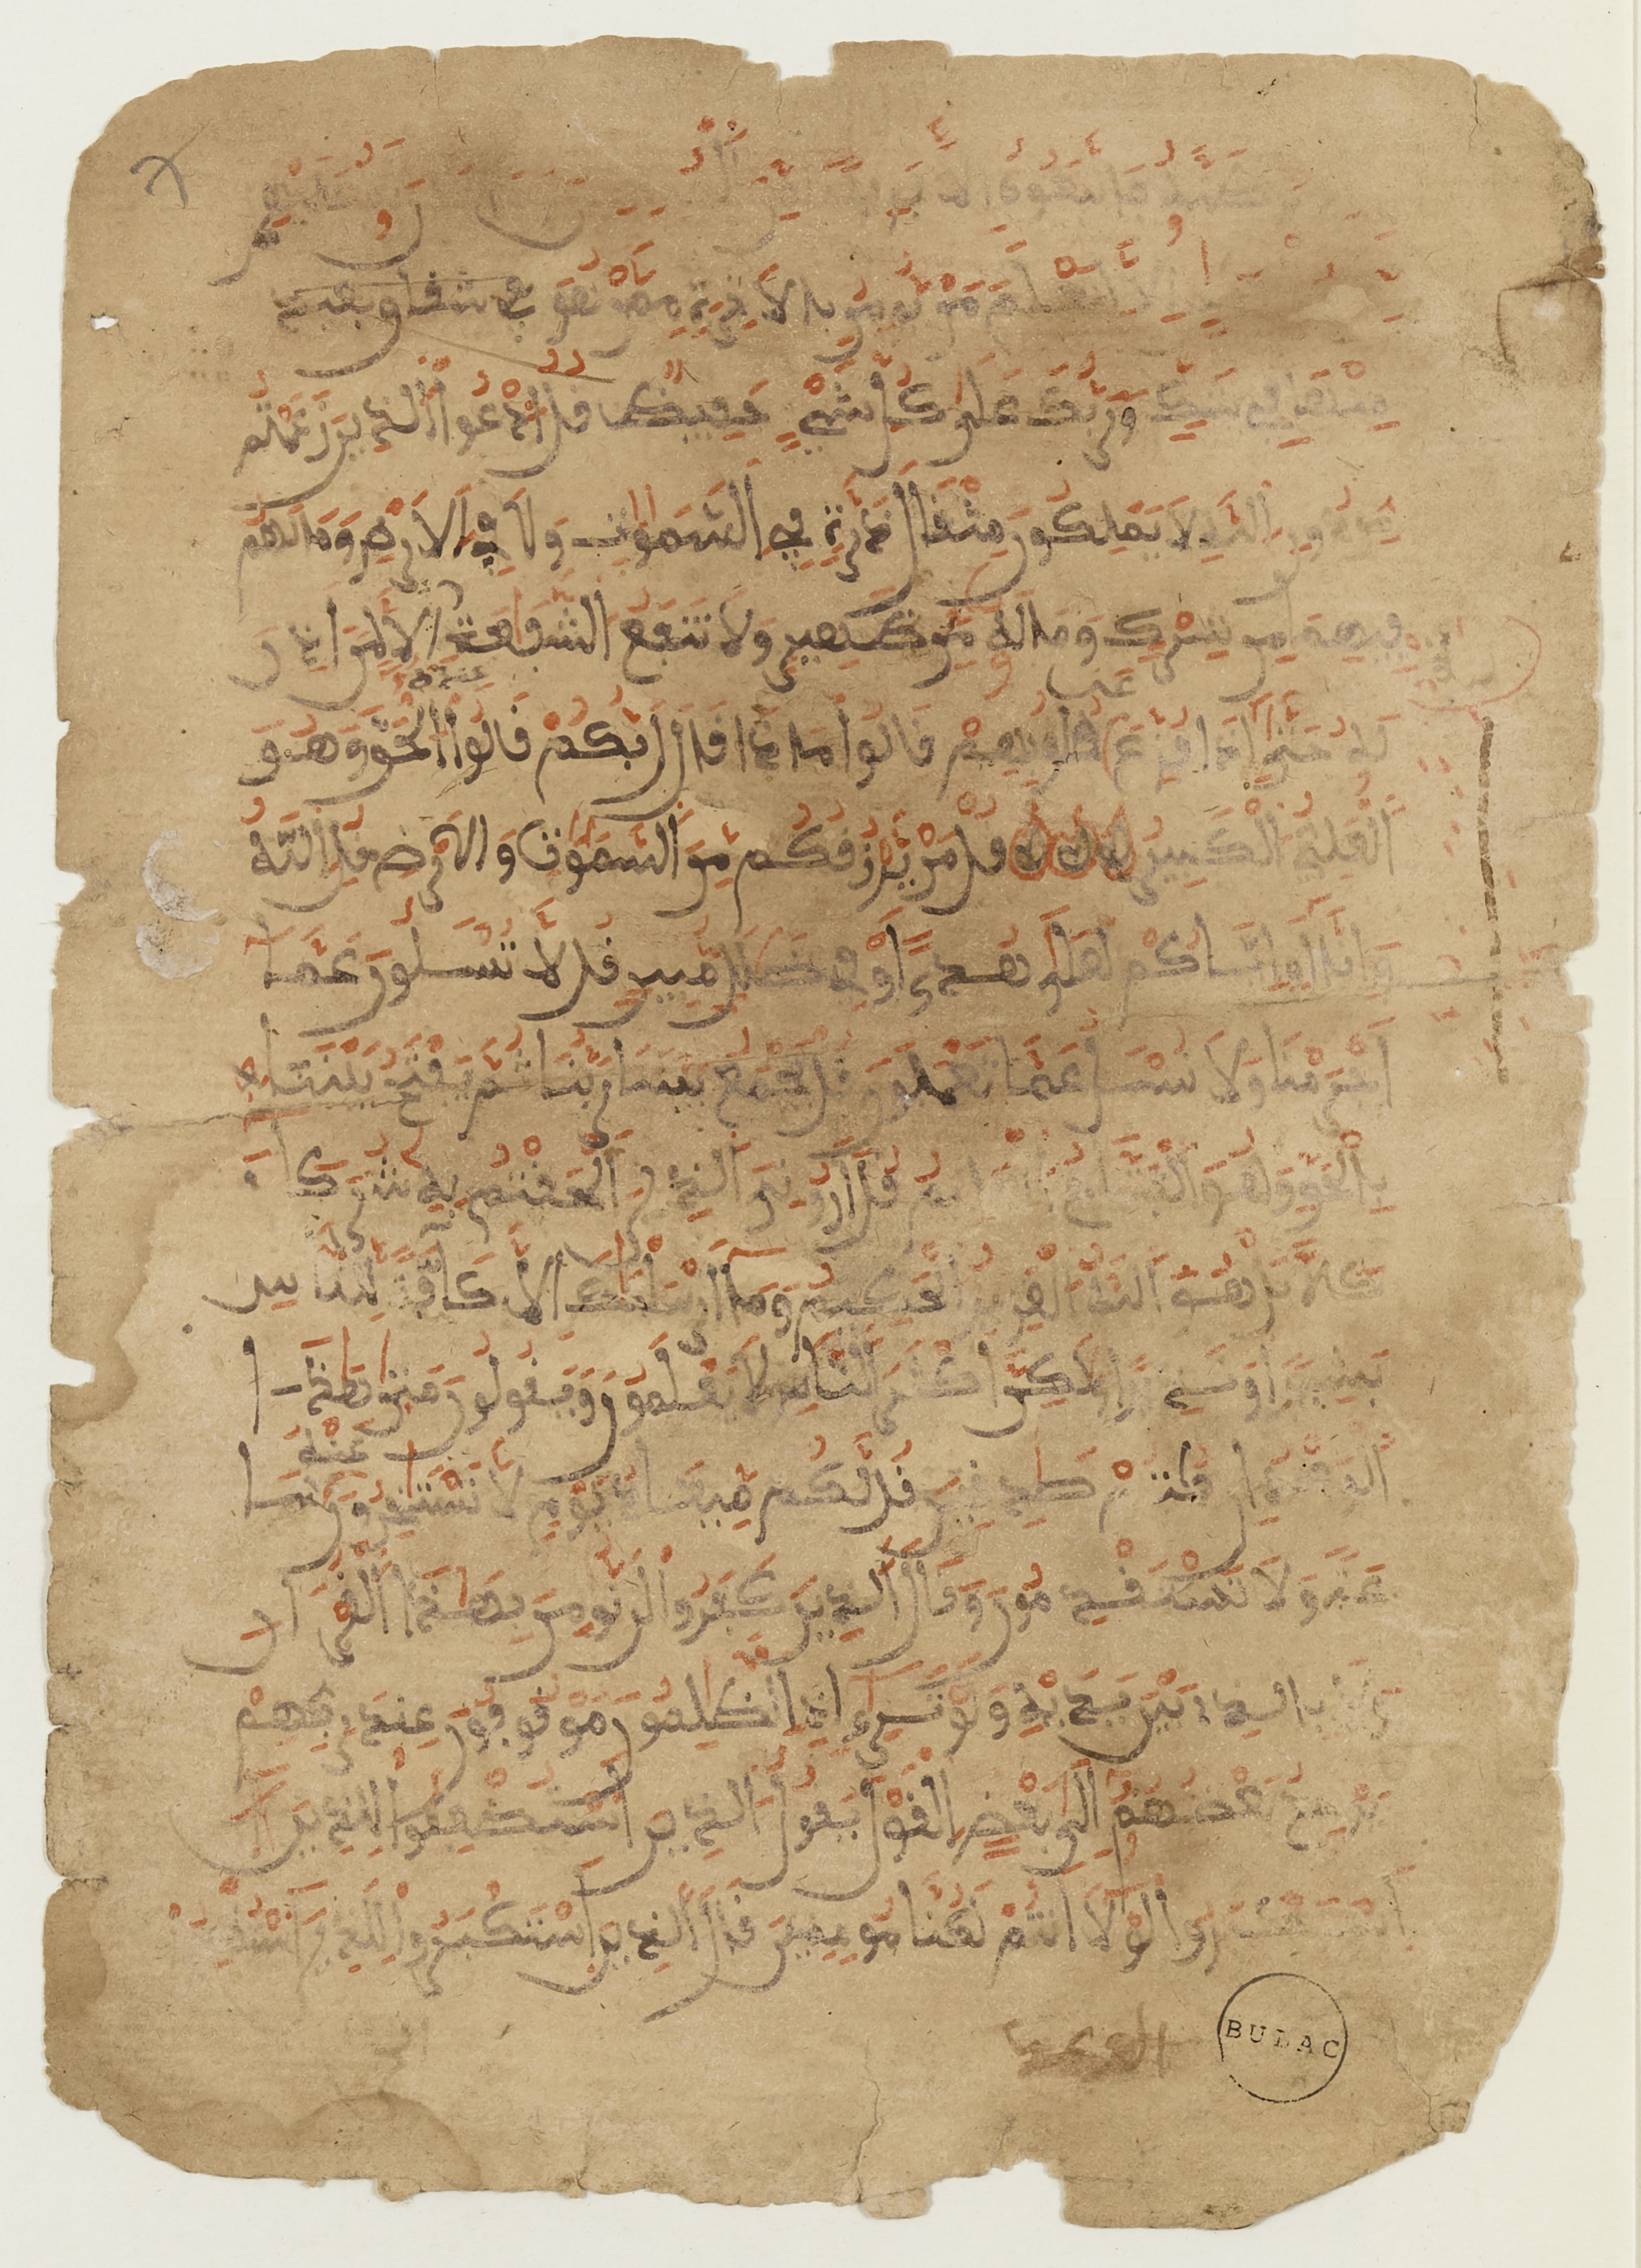 فاتبعوه الا فريقا من عليهم
الا لنعلم من يومن بالاخرة ممن هو في شك وربك
وربك على كل شيء حفيظ قل ادعوا الذين زعمتم
من دون الله لا يملكون مثقال ذرة في السموات ولا في الارض وما لهم
فيهما من شرك وما له من ظهير ولا تنفع الشفاعة عنده الا لمن اذن
له حتى اذا فزع عن قلوبهم قالوا ماذا قال ربكم قالوا الحق وهو
العلي الكبير قل من يرزقكم من السموات والارض قل الله
وانا او اياكم لعلى هدى او في ضلل مبين قل لا تسلون عما
اجرمنا ولا نسل عما تعملون قل يجمع بيننا ربنا ثم يفتح بيننا
بالحق وهو الفتاح العليم قل اروني الذين الحقتم به شركاء
كلا بل هو الله العزيز الحكيم وما ارسلنك الا كافة للناس
بشيرا ونذيرا ولكن اكثر الناس لا يعلمون ويقولون متى هذا
الوعد ان كنتم صدقين قل لكم ميعاد يوم لا تستخرون عنه سا
عة ولا تستقدمون وقال الذين كفروا لن نومن بهذا القرءان
ولا بالذي بين يديه ولو ترى اذ الظلمون موقوفون عند ربهم
يرجع بعضهم الى بعض القول يقول الذين استضعفوا للذين
استكبروا لولا انتم لكنا مومنين قال الذين استكبروا للذين استضعفوا
BULAC